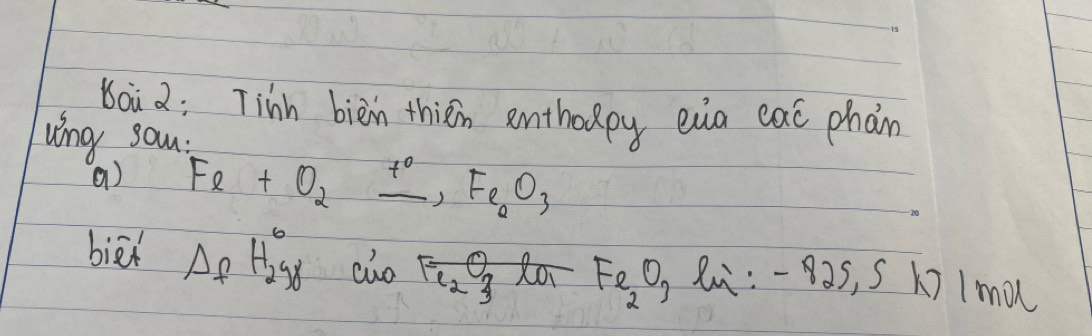 15
Bài 2: Tính biến thiên enthalpy của các phản
ứng sau:
a) Fe + O₂ —t°→ Fe₂O₃
20
biết ΔfH°298 của Fe₂O₃ là Fe₂O₃ là: -825,5 kJ/mol